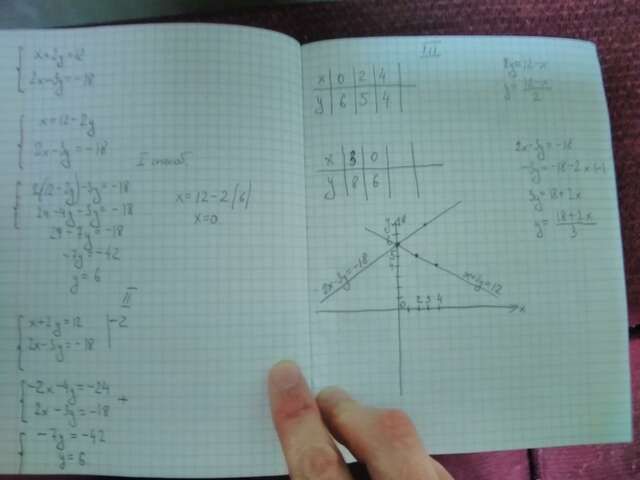 x+2y=12
2x-3y=-18
x=12-2y
2x-3y=-18
I способ
2(12-2y)-3y=-18
24-4y-3y=-18
24-7y=-18
-7y=-42
y=6
x=12-2(6)
x=0
II
x+2y=12 |-2
2x-3y=-18
-2x-4y=-24
2x-3y=-18 +
-7y=-42
y=6
III
x 0 2 4
y 6 5 4
x 3 0
y 8 6
2y=12-x
y=12-x/2
2x-3y=-18
3y=18+2x
y=18+2x/3
y 8
6
5
4
2x-3y=-18
x+2y=12
0 2 3 4 x